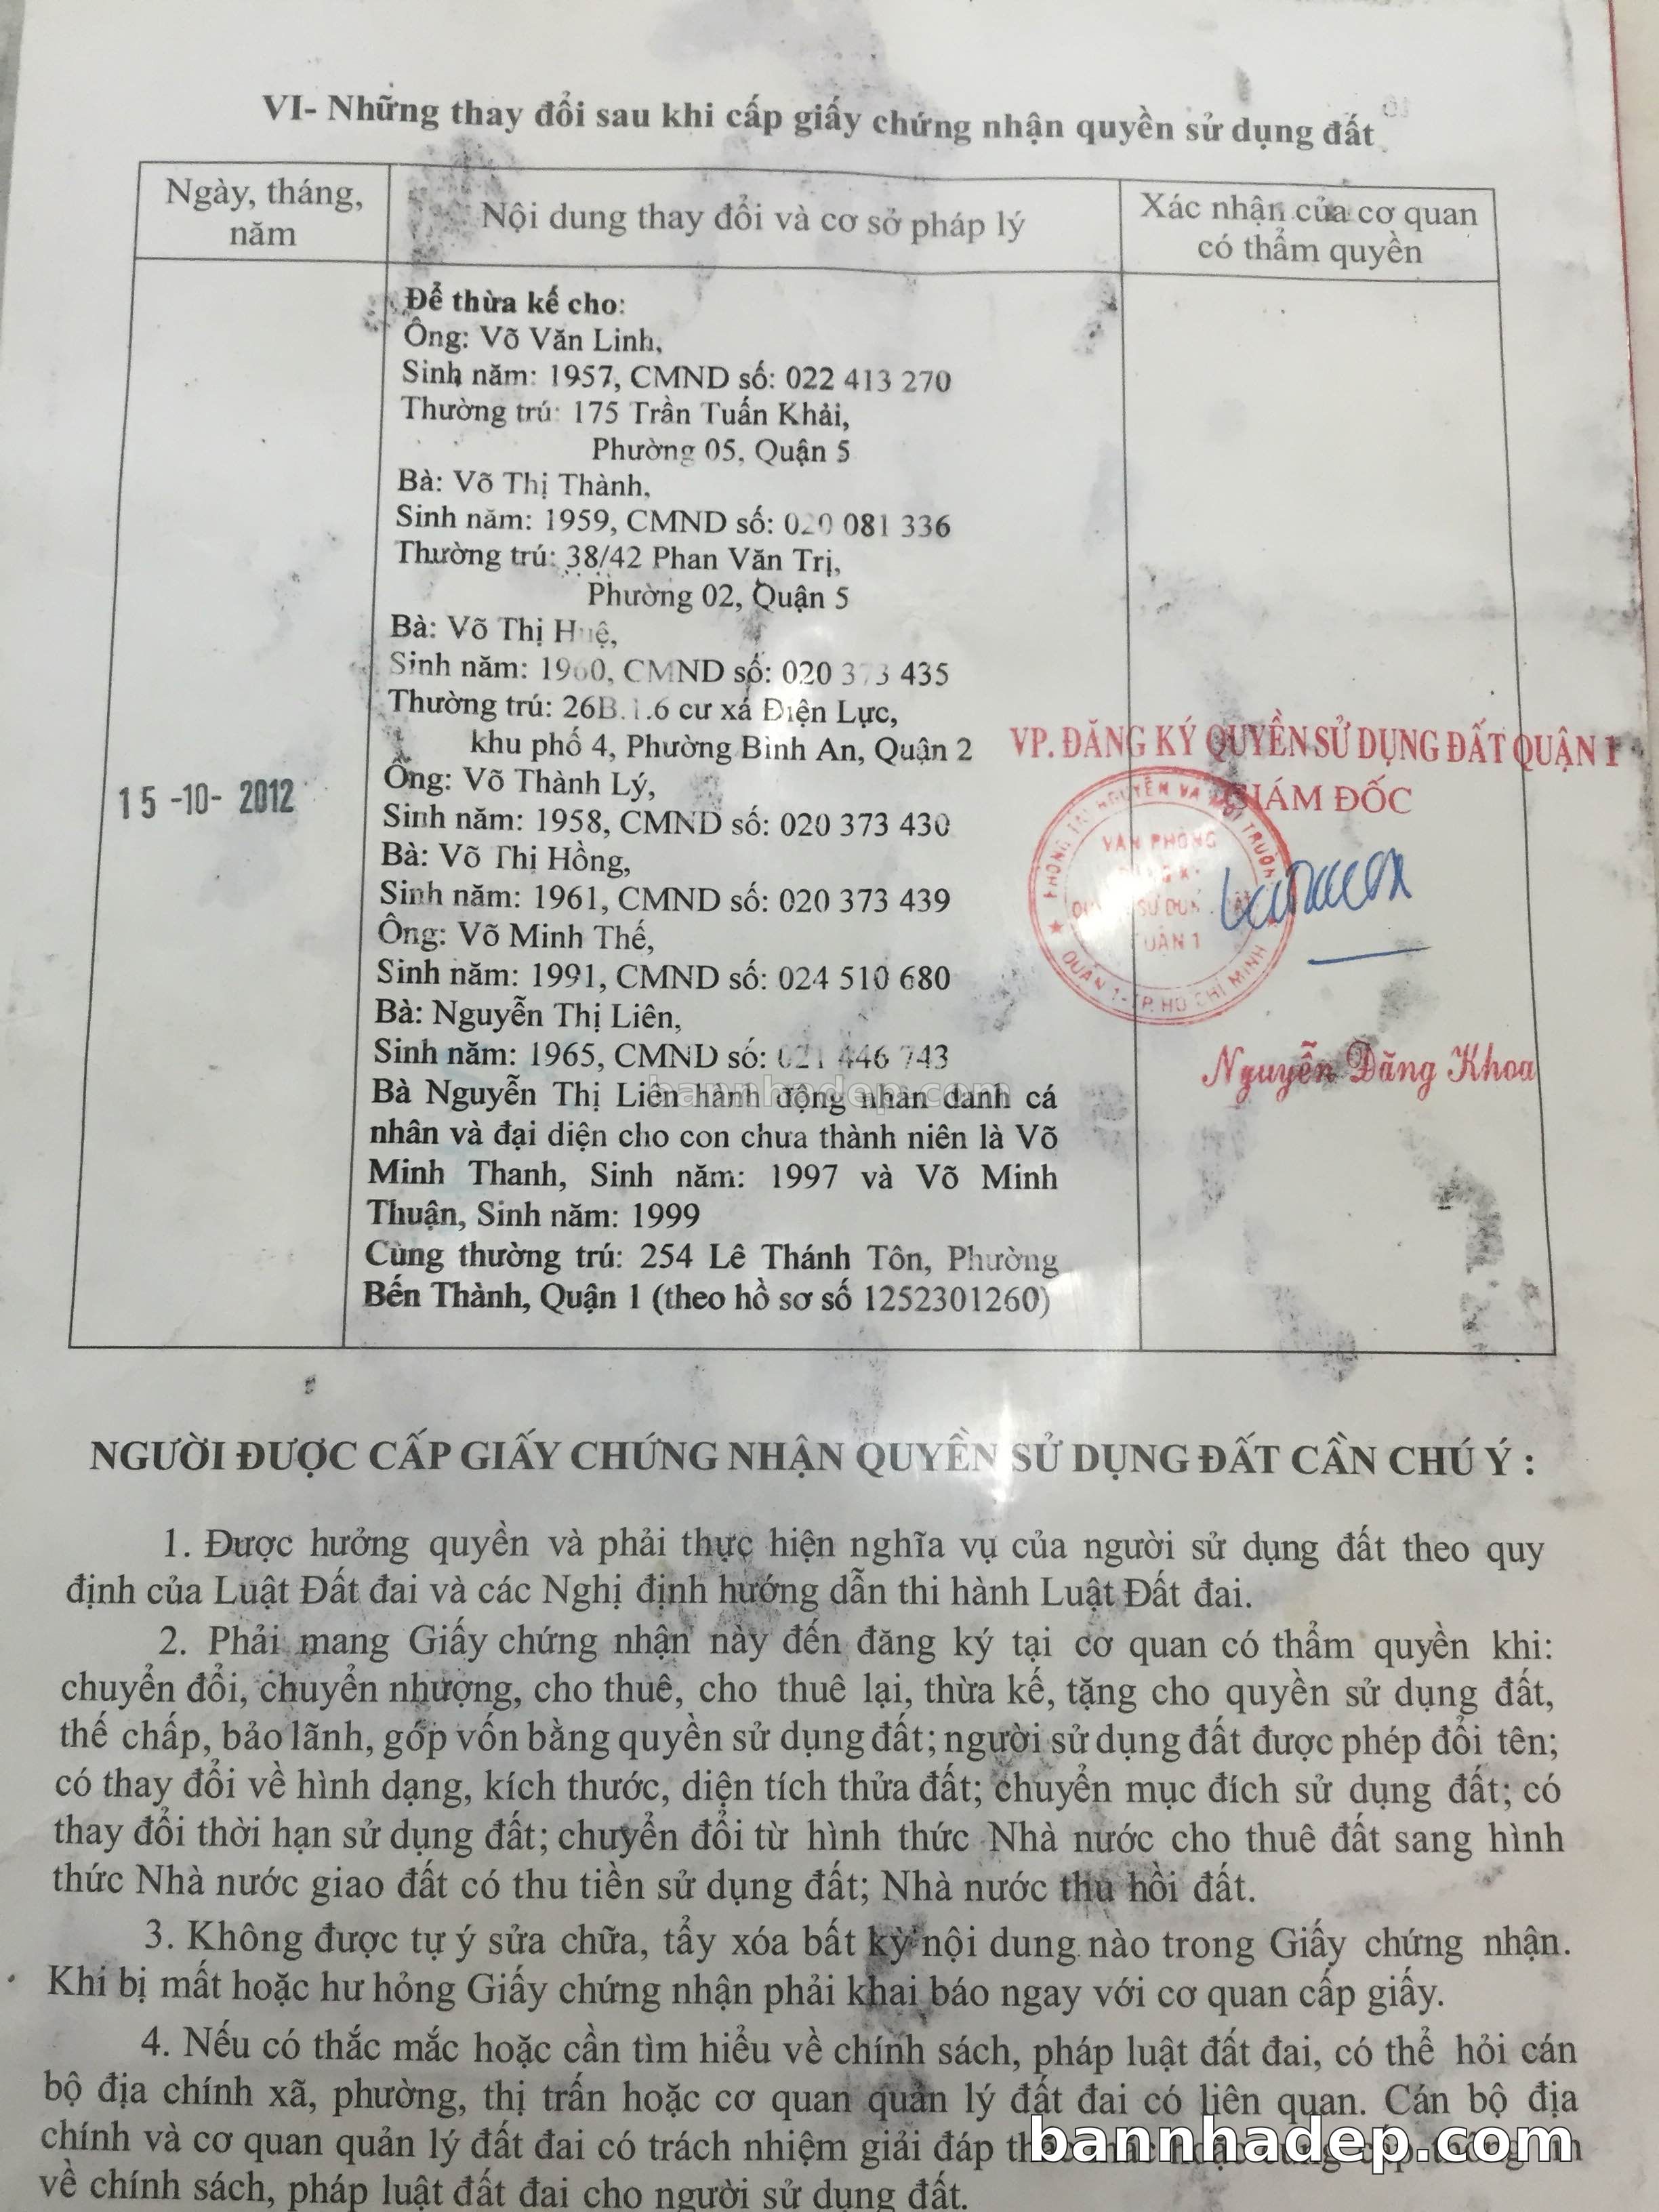 VI- Những thay đổi sau khi cấp giấy chứng nhận quyền sử dụng đất
Ngày, tháng,
năm
Nội dung thay đổi và cơ sở pháp lý
Xác nhận của cơ quan
có thẩm quyền
15-10- 2012
Để thừa kế cho:
Ông: Võ Văn Linh,
Sinh năm: 1957, CMND số: 022 413 270
Thường trú: 175 Trần Tuấn Khải,
Phường 05, Quận 5
Bà: Võ Thị Thành,
Sinh năm: 1959, CMND số: 020 081 336
Thường trú: 38/42 Phan Văn Trị,
Phường 02, Quận 5
Bà: Võ Thị Huệ,
Sinh năm: 1960, CMND số: 020 373 435
Thường trú: 26B.1.6 cư xá Điện Lực,
khu phố 4, Phường Bình An, Quận 2
Ông: Võ Thành Lý,
Sinh năm: 1958, CMND số: 020 373 430
Bà: Võ Thị Hồng,
Sinh năm: 1961, CMND số: 020 373 439
Ông: Võ Minh Thế,
Sinh năm: 1991, CMND số: 024 510 680
Bà: Nguyễn Thị Liên,
Sinh năm: 1965, CMND số: 021 446 743
Bà Nguyễn Thị Liên hành động nhân danh cá
nhân và đại diện cho con chưa thành niên là Võ
Minh Thanh, Sinh năm: 1997 và Võ Minh
Thuận, Sinh năm: 1999
Cùng thường trú: 254 Lê Thánh Tôn, Phường
Bến Thành, Quận 1 (theo hồ sơ số 1252301260)
VP. ĐĂNG KÝ QUYỀN SỬ DỤNG ĐẤT QUẬN 1
GIÁM ĐỐC
VĂN PHÒNG
QUẬN 1
QUẬN 1-TP. HỒ CHÍ MINH
Nguyễn Đăng Khoa
bannhadep.com
NGƯỜI ĐƯỢC CẤP GIẤY CHỨNG NHẬN QUYỀN SỬ DỤNG ĐẤT CẦN CHÚ Ý :
1. Được hưởng quyền và phải thực hiện nghĩa vụ của người sử dụng đất theo quy
định của Luật Đất đai và các Nghị định hướng dẫn thi hành Luật Đất đai.
2. Phải mang Giấy chứng nhận này đến đăng ký tại cơ quan có thẩm quyền khi:
chuyển đổi, chuyển nhượng, cho thuê, cho thuê lại, thừa kế, tặng cho quyền sử dụng đất,
thế chấp, bảo lãnh, góp vốn bằng quyền sử dụng đất; người sử dụng đất được phép đổi tên;
có thay đổi về hình dạng, kích thước, diện tích thửa đất; chuyển mục đích sử dụng đất; có
thay đổi thời hạn sử dụng đất; chuyển đổi từ hình thức Nhà nước cho thuê đất sang hình
thức Nhà nước giao đất có thu tiền sử dụng đất; Nhà nước thu hồi đất.
3. Không được tự ý sửa chữa, tẩy xóa bất kỳ nội dung nào trong Giấy chứng nhận.
Khi bị mất hoặc hư hỏng Giấy chứng nhận phải khai báo ngay với cơ quan cấp giấy.
4. Nếu có thắc mắc hoặc cần tìm hiểu về chính sách, pháp luật đất đai, có thể hỏi cán
bộ địa chính xã, phường, thị trấn hoặc cơ quan quản lý đất đai có liên quan. Cán bộ địa
chính và cơ quan quản lý đất đai có trách nhiệm giải đáp
về chính sách, pháp luật đất đai cho người sử dụng đất.
bannhadep.com